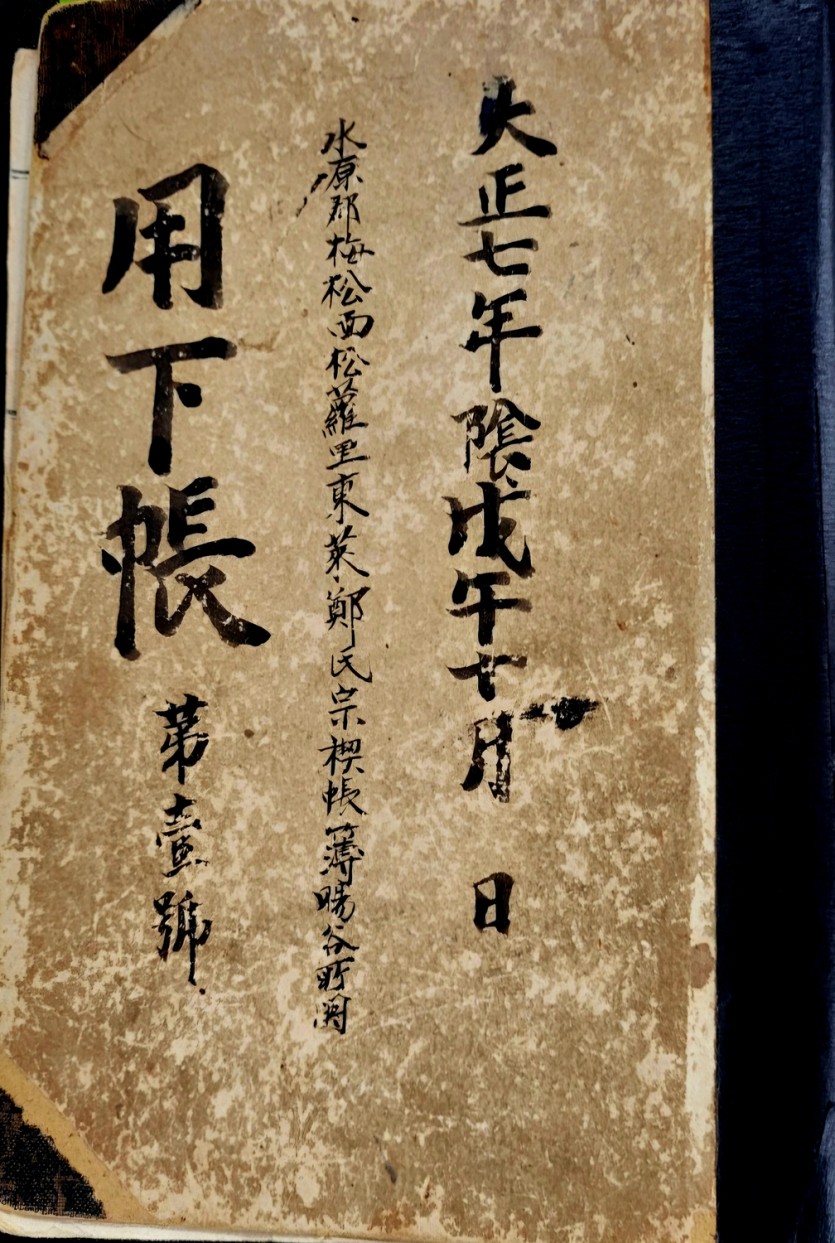 大正七年陰戊午十月 日
水原郡梅松面松蘿里東萊鄭氏宗稧帳簿暘谷所関
用下帳 第壹號